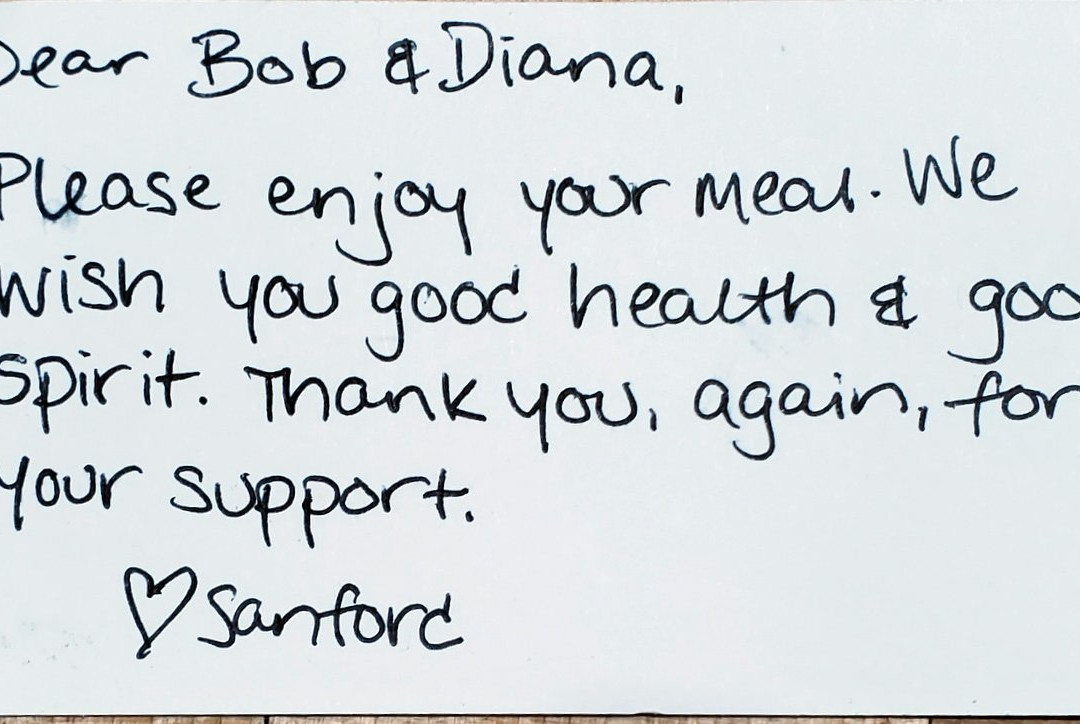 Dear Bob & Diana,
Please enjoy your meal. We
wish you good health & goo
spirit. Thank you, again, for
your support.
♡ Sanford